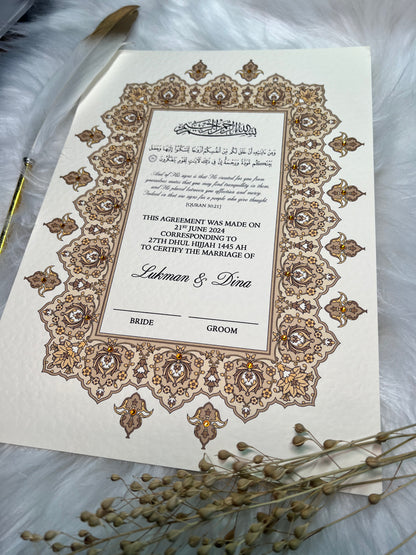 بسم الله الرحمن الرحيم
And of His signs is that He created for you from
yourselves mates that you may find tranquility in them,
and He placed between you affection and mercy.
Indeed in that are signs for a people who give thought
[QURAN 30:21]
THIS AGREEMENT WAS MADE ON
21ST JUNE 2024
CORRESPONDING TO
27TH DHUL HIJJAH 1445 AH
TO CERTIFY THE MARRIAGE OF
Lukman & Dina
BRIDE GROOM